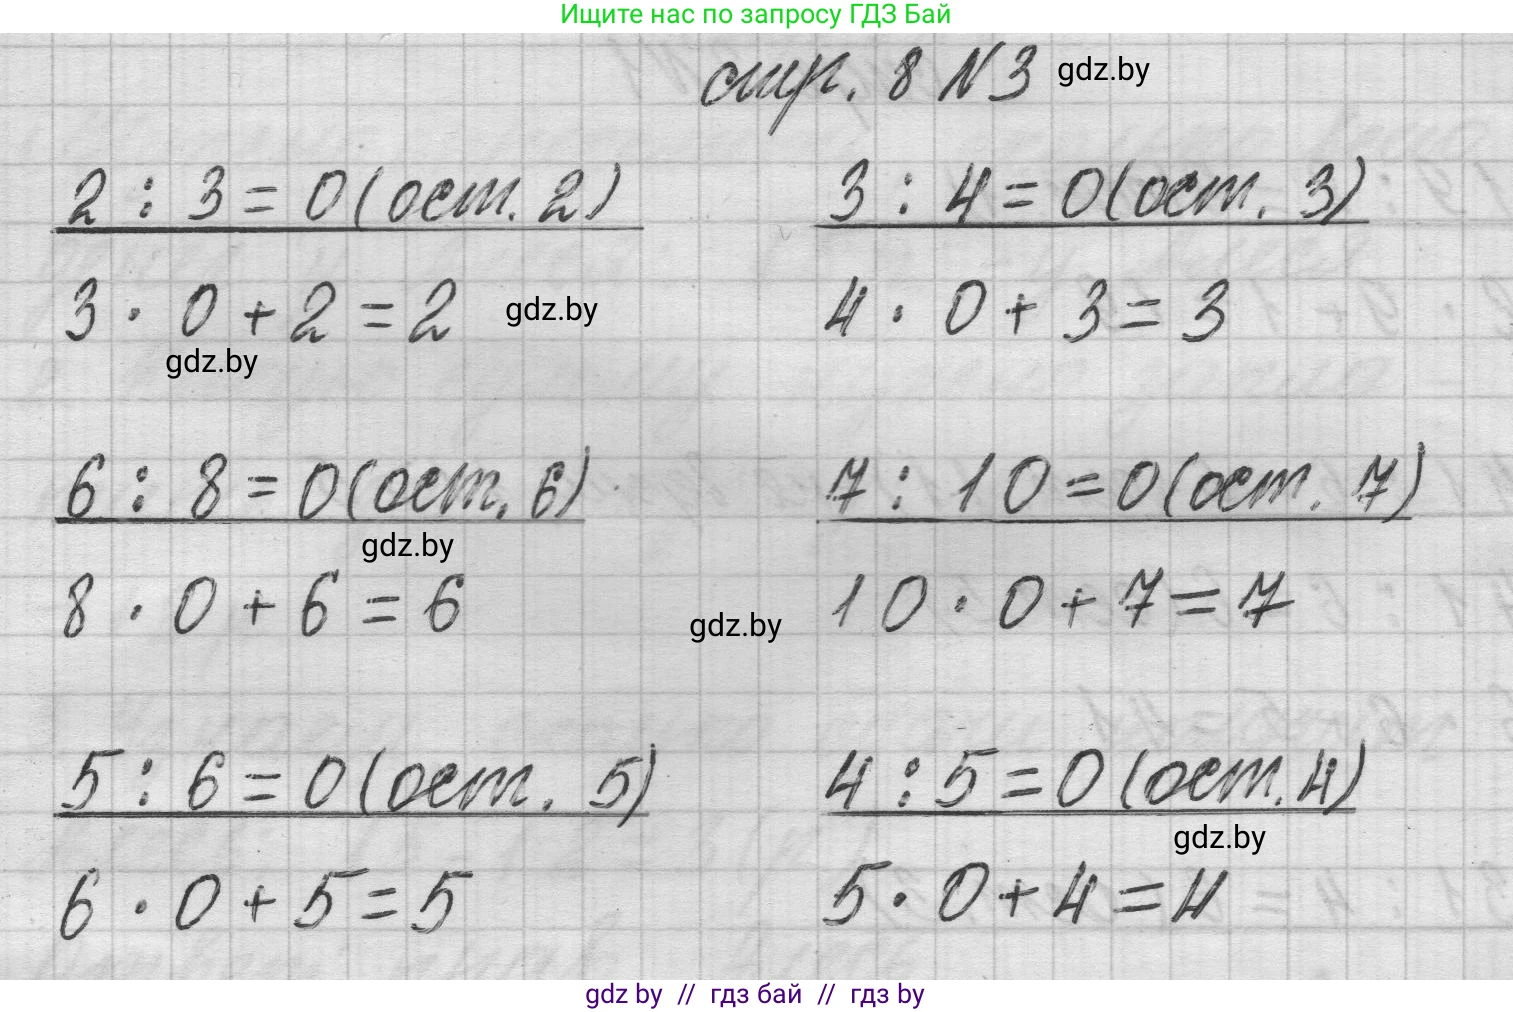 Ищите нас по запросу ГДЗ Бай
стр. 8 №3 gdz.by
2 : 3 = 0 (ост. 2) 3 : 4 = 0 (ост. 3)
3 · 0 + 2 = 2 gdz.by 4 · 0 + 3 = 3
gdz.by
6 : 8 = 0 (ост. 6) 7 : 10 = 0 (ост. 7)
gdz.by
8 · 0 + 6 = 6 gdz.by 10 · 0 + 7 = 7
5 : 6 = 0 (ост. 5) 4 : 5 = 0 (ост. 4)
gdz.by
6 · 0 + 5 = 5 5 · 0 + 4 = 4
gdz by // гдз бай // гдз by